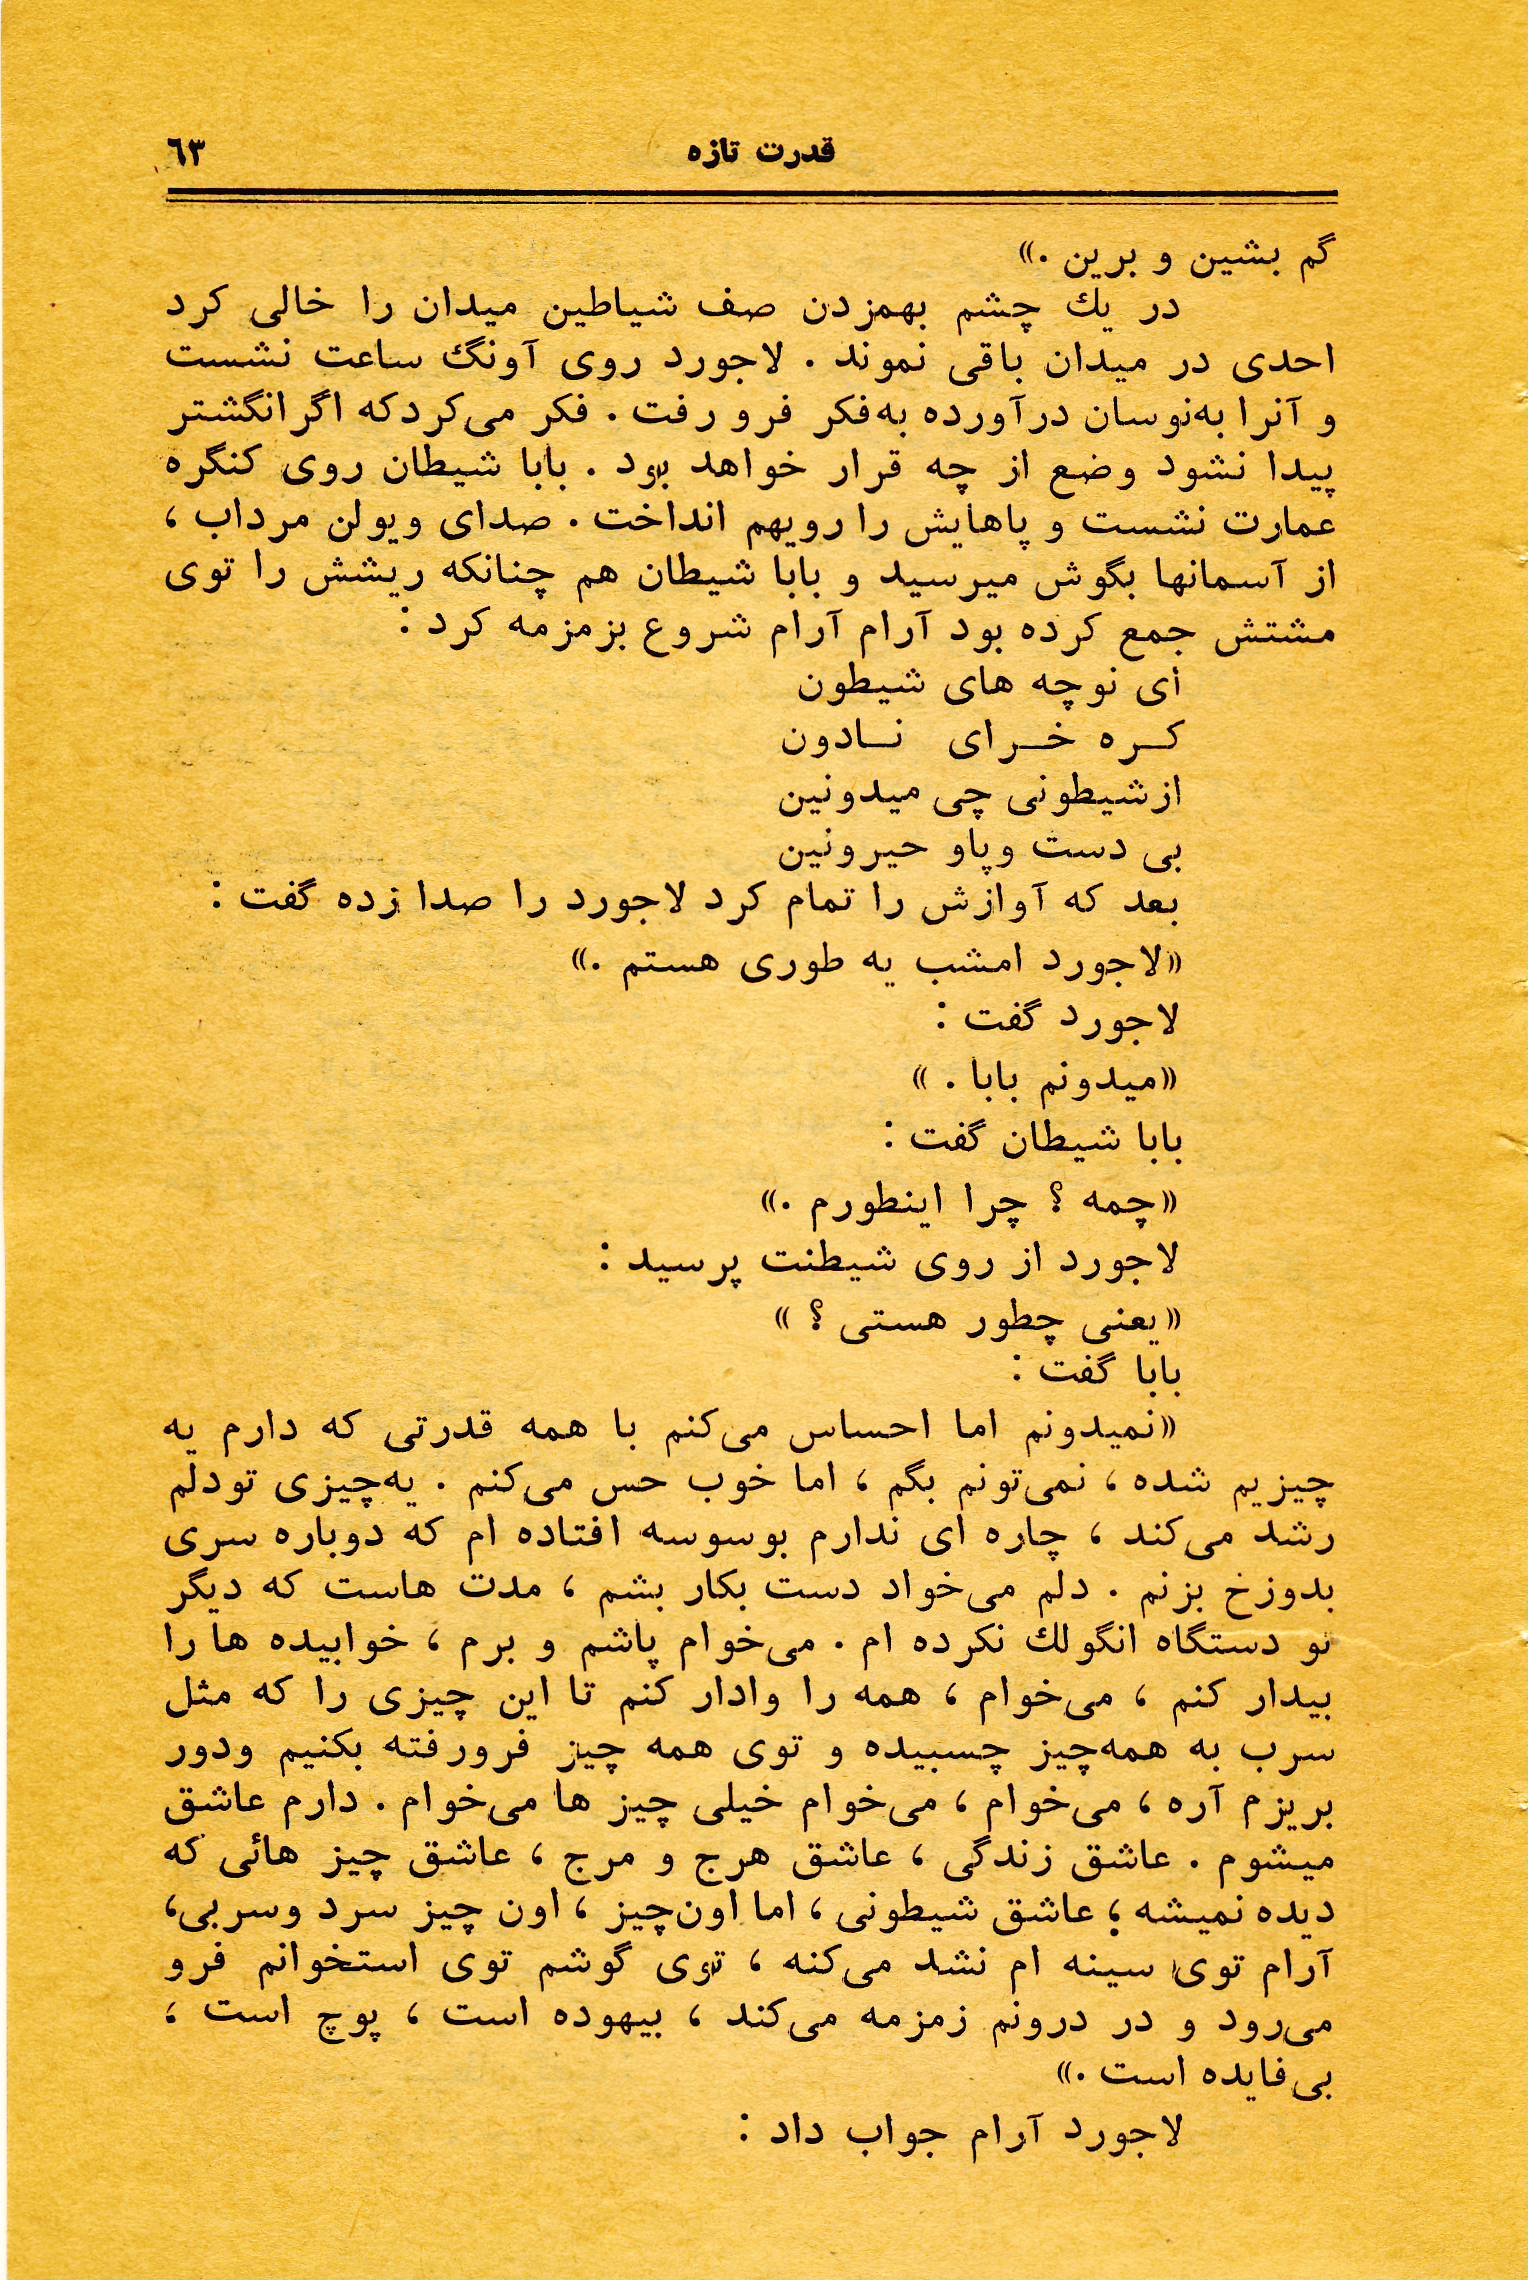 قدرت تازه ٦٣
گم بشین و برین .»
در یك چشم بهمزدن صف شیاطین میدان را خالی کرد
احدی در میدان باقی نموند . لاجورد روی آونگ ساعت نشست
و آنرا به‌نوسان درآورده به‌فکر فرو رفت . فکر می‌کرد‌که اگر انگشتر
پیدا نشود وضع از چه قرار خواهد بود . بابا شیطان روی کنگره
عمارت نشست و پاهایش را رویهم انداخت . صدای ویولن مرداب ،
از آسمانها بگوش میرسید و بابا شیطان هم چنانکه ریشش را توی
مشتش جمع کرده بود آرام آرام شروع بزمزمه کرد :
ای نوچه های شیطون
کــره خــرای نــادون
از شیطونی چی میدونین
بی دست وپاو حیرونین
بعد که آوازش را تمام کرد لاجورد را صدا زده گفت :
«لاجورد امشب یه طوری هستم .»
لاجورد گفت :
«میدونم بابا . »
بابا شیطان گفت :
«چمه ؟ چرا اینطورم .»
لاجورد از روی شیطنت پرسید :
«یعنی چطور هستی ؟ »
بابا گفت :
«نمیدونم اما احساس می‌کنم با همه قدرتی که دارم یه
چیزیم شده ، نمی‌تونم بگم ، اما خوب حس می‌کنم . یه‌چیزی تودلم
رشد می‌کند ، چاره ای ندارم بوسوسه افتاده ام که دوباره سری
بدوزخ بزنم . دلم می‌خواد دست بکار بشم ، مدت هاست که دیگر
تو دستگاه انگولك نکرده ام . می‌خوام پاشم و برم ، خوابیده ها را
بیدار کنم ، می‌خوام ، همه را وادار کنم تا این چیزی را که مثل
سرب به همه‌چیز چسبیده و توی همه چیز فرورفته بکنیم ودور
بریزم آره ، می‌خوام ، می‌خوام خیلی چیز ها می‌خوام . دارم عاشق
میشوم . عاشق زندگی ، عاشق هرج و مرج ، عاشق چیز هائی که
دیده نمیشه ؛ عاشق شیطونی ، اما اون‌چیز ، اون چیز سرد وسربی،
آرام توی سینه ام نشد می‌کنه ، توی گوشم توی استخوانم فرو
می‌رود و در درونم زمزمه می‌کند ، بیهوده است ، پوچ است ،
بی‌فایده است .»
لاجورد آرام جواب داد :